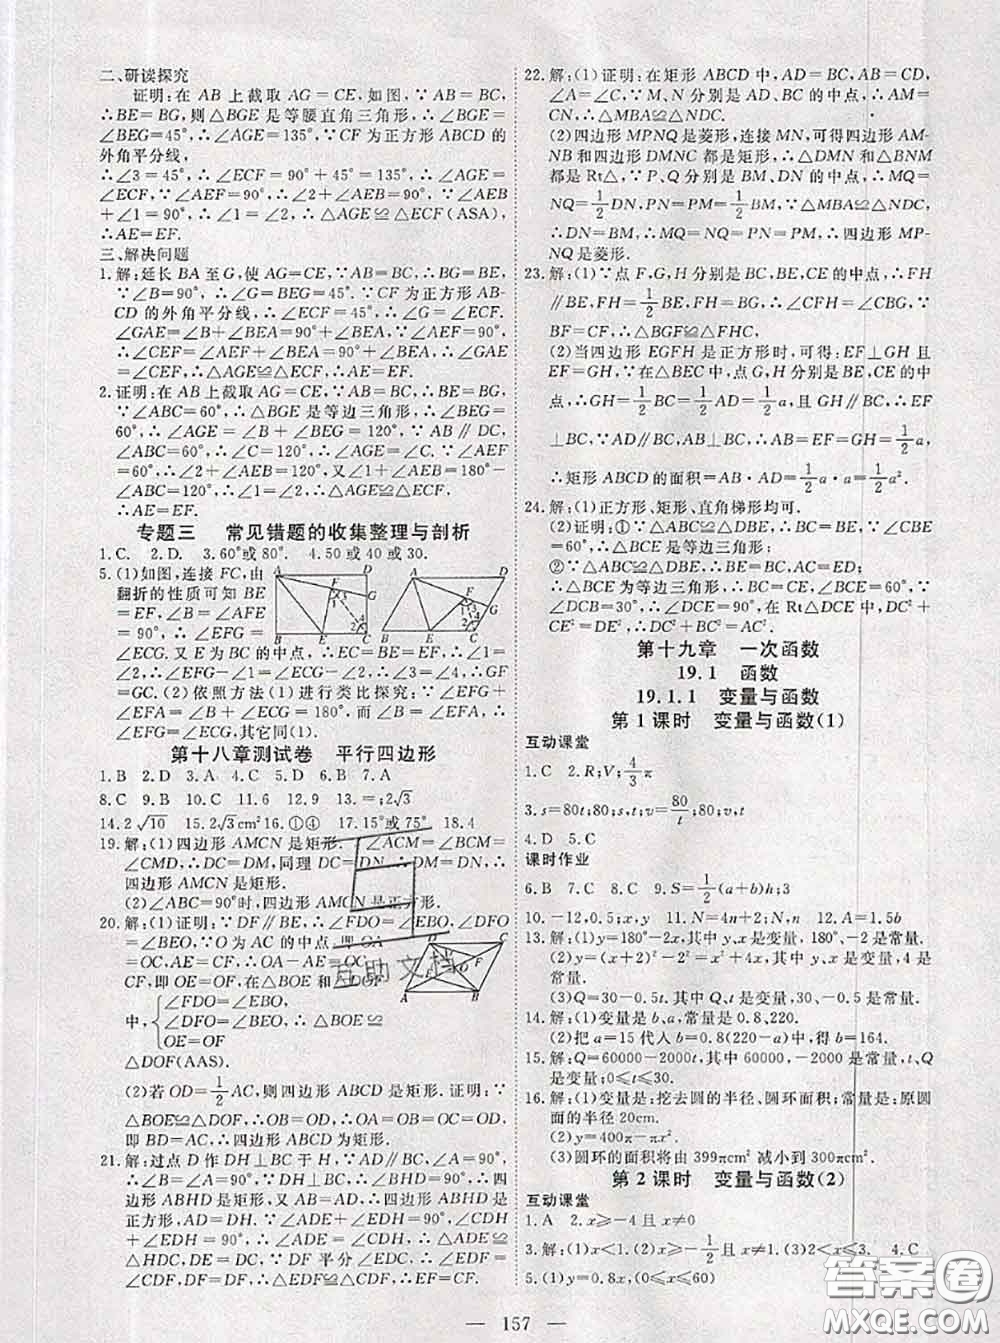 二、研读探究
证明:在 AB 上截取 AG=CE,如图,∵AB=BC,
∴BG=BE,则△BGE 是等腰直角三角形,∴∠BGE=
∠BEG=45°,∴∠AGE=135°,∵CF 为正方形 ABCD 的
外角平分线,
∴∠3=45°,∴∠ECF=90°+45°=135°,∴∠AGE=
∠ECF,∵∠AEF=90°,∴∠2+∠AEB=90°,∵∠AEB
+∠1=90°,∴∠1=∠2,∴△AGE≌△ECF(ASA),
∴AE=EF.
三、解决问题
1.解:延长 BA 至 G,使 AG=CE,∵AB=BC,∴BG=BE,
∵∠B=90°,∴∠G=∠BEG=45°.∵CF 为正方形 AB-
CD 的外角平分线,∴∠ECF=45°.∴∠G=∠ECF.
∠GAE=∠B+∠AEB=90°+∠AEB,
∠CEF=∠AEF+∠AEB=90°+∠AEB,∴∠GAE
=∠CEF,∴△AGE≌△ECF,∴AE=EF.
2.证明:在 AB 上截取 AG=CE,∵AB=BC,∴BE=BG.
∵∠ABC=60°,∴△BGE 是等边三角形,∴∠BGE=
60°,∴∠AGE=∠B+∠BEG=120°,∵AB∥DC,
∠ABC=60°,∴∠C=120°,∴∠AGE=∠C.∵∠AEF
=∠ABC=60°,∴∠1+∠2=120°,又∠1+∠AEB=180°-
∠ABC=120°,∴∠1=∠2,∴△AGE≌△ECF,
∴AE=EF.
专题三 常见错题的收集整理与剖析
1.C. 2.D. 3.60°或 80°. 4.50 或 40 或 30.
5.(1)如图,连接 FC,由
翻折的性质可知 BE
=EF,∠B=∠AFE
=90°,∴∠EFG=
∠ECG.又 E 为 BC 的中点,∴BE=CE,∴EF=EC,
∴∠EFC=∠ECF,∴∠GFC=∠GCF,∴GF=
GC.(2)依照方法(1)进行类比探究:∠EFG=
∠ECG,∵∠B+∠ECG=180°,而∠B=∠AFE,
∠AFE+∠EFG=180°,其它同(1).
第十八章测试卷 平行四边形
1.B 2.D 3.A 4.C 5.D 6.B 7.A
8.C 9.B 10.C 11.6 12.9 13.=;2√3
14.2√10 15.2√3cm² 16.①④ 17.15°或 75° 18.4
19.解:(1)四边形 AMCN 是矩形.∵∠ACM=∠BCM
=∠CMD,∴DC=DM,同理 DC=DN,∴DM=DN,∴四
边形 AMCN 是矩形.
(2)∠ABC=90°时,四边形 AMCN 是正方形.
20.解:(1)证明:∵DF∥BE,∴∠FDO=∠EBO,∠DFO
=∠BEO,∵O 为 AC 的中点,即 OA
=OC,AE=CF,∴OA-AE=OC-
CF,即 OE=OF,在△BOE 和△DOF
中,{∠FDO=∠EBO,
∠DFO=∠BEO,∴△BOE≌
OE=OF
△DOF(AAS).
(2)若 OD=1/2AC,则四边形 ABCD 是矩形.证明:∵
△BOE≌△DOF,∴OB=OD,∴OA=OB=OC=OD,
即 BD=AC,∴四边形 ABCD 为矩形.
21.解:过点 D 作 DH⊥BC 于 H,∵∠A=∠B=90°,∴四
边形 ABHD 是矩形,又 AD=AB,∴四边形 ABHD 是
正方形,AD=DH.∵∠EDC=90°,∴∠EDH+∠CDH
=90°,∵∠ADE+∠EDH=90°,∴∠ADE=∠CDH,
∴△ADE≌△HDC,∴DE=DC,∵DF 平分∠EDC,∴∠EDF
=∠CDF,∴△DEF≌△DCF,∴EF=CF.
22.解:(1)证明:在矩形 ABCD 中,AD=BC,AB=CD,
∠A=∠C,∵M、N 分别是 AD、BC 的中点,∴AM=
CN,∴△MBA≌△NDC.
(2)四边形 MPNQ 是菱形,连接 MN,可得四边形 AM-
NB 和四边形 DMNC 都是矩形,∴△DMN 和△BNM
都是 Rt△,∵P、Q 分别是 BM、DN 的中点,∴MQ=NQ
=1/2DN,PN=PM=1/2BM,∵△MBA≌△NDC,
∴DN=BM,∴MQ=NQ=PN=PM,∴四边形 MP-
NQ 是菱形.
23.解:(1)∵点 F,G,H 分别是 BC,BE,CE 的中点,∴FH
∥BE,FH=1/2BE=BG,∴∠CFH=∠CBG,∵
BF=CF,∴△BGF≌△FHC,
(2)当四边形 EGFH 是正方形时,可得:EF⊥GH 且
EF=GH,∵在△BEC 中,点 G,H 分别是 BE,CE 的中
点,∴GH=1/2BC=1/2AD=1/2a,且 GH∥BC,∴EF
⊥BC,∵AD∥BC,AB⊥BC,∴AB=EF=GH=1/2a,
∴矩形 ABCD 的面积=AB·AD=1/2a·a=1/2a².
24.解:(1)正方形、矩形、直角梯形均可.
(2)证明:①∵△ABC≌△DBE,∴BC=BE,∵∠CBE
=60°,∴△BCE 是等边三角形;
②∵△ABC≌△DBE,∴BE=BC,AC=ED;
∴△BCE 为等边三角形,∴BC=CE,∠BCE=60°,∵
∠DCB=30°,∴∠DCE=90°,在 Rt△DCE 中,DC²+
CE²=DE²,∴DC²+BC²=AC².
第十九章 一次函数
19.1 函数
19.1.1 变量与函数
第 1 课时 变量与函数(1)
互动课堂
1.C 2.R;V;4/3π
3.s=80t;80;s,t;v=80/t;80;v,t
4.D 5.C
课时作业
6.B 7.C 8.C 9.S=1/2(a+b)h;3
10.-12,0.5;x,y 11.N=4n+2;N,n 12.A=1.5b
13.解:(1)y=180°-2x,其中 x、y 是变量,180°、-2 是常量.
(2)y=(x+2)²-2²=x²+4x,其中 x、y 是变量,4 是常
量.
(3)Q=30-0.5t.其中 Q、t 是变量,30、-0.5 是常量.
14.解:(1)变量是 b、a,常量是 0.8、220.
(2)把 a=15 代入 b=0.8(220-a)中,得 b=164.
15.解:Q=60000-2000t,其中 60000,-2000 是常量,t、Q
是变量;0≤t≤30.
16.解:(1)变量是:挖去圆的半径、圆环面积;常量是:原圆
面的半径 20cm.
(2)y=400π-πx².
(3)圆环的面积将由 399πcm² 减小到 300πcm².
第 2 课时 变量与函数(2)
互动课堂
1.A 2.x≥-4 且 x≠0
3.解:(1)x<1.(2)x≥-1/2且 x≠1.(3)2<x≤3. 4.C
5.(1)y=0.8x,(0≤x≤60)
— 157 —
互助文档
答案圈
MXQE.COM